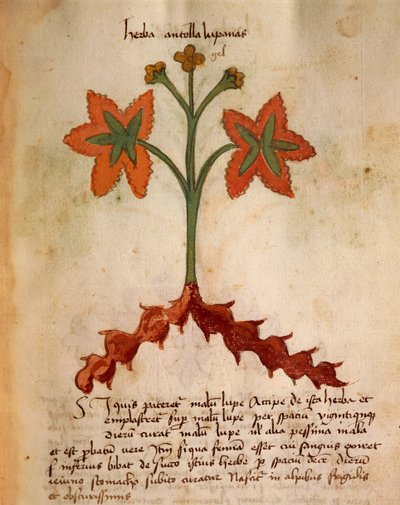 herba antolla lupanas
gel
Si quis pateret᷑ malũ lupe Accipe de ista herba et
emplastret᷑ sup malũ lupe per spaciũ viginti quinq
dierũ curat malũ lupe ul' alia pessima mala
et est p̱batũ vere Itm̃ si qua femina esset cui sanguis exiret
p inferius bibat de succo istius herbe p spaciũ decẽ dierũ
ieiuno stomacho subito curatur Nascit᷑ in alpibus frigidis
et obscurissimis